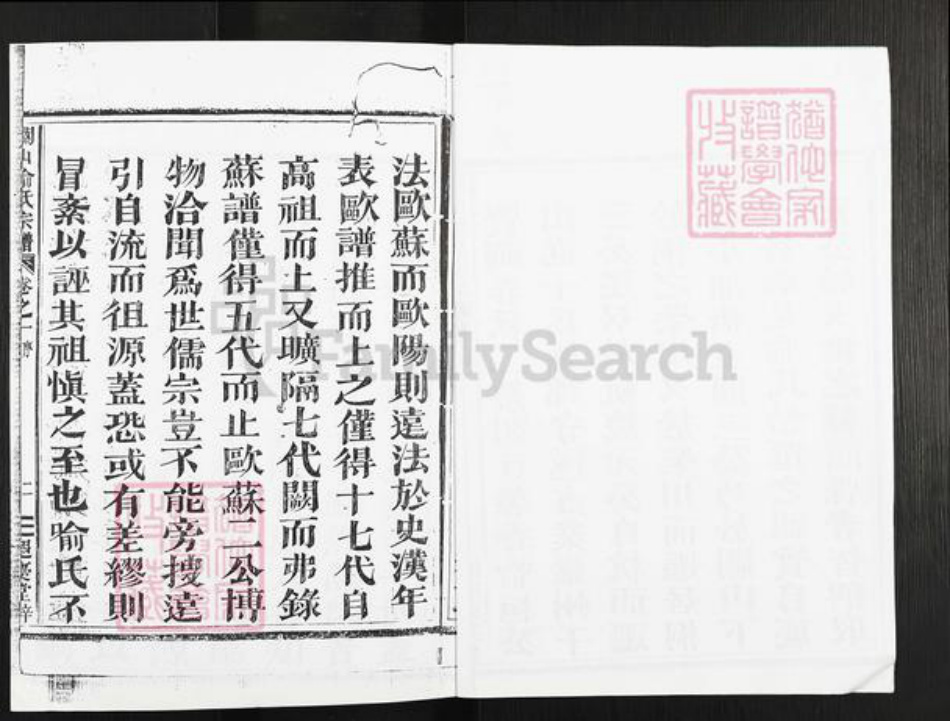 法歐蘇而歐陽則遠法於史漢年
表歐譜推而上之僅得十七代自
高祖而上又曠隔七代闕而弗錄
蘇譜僅得五代而止歐蘇二公博
物洽聞爲世儒宗豈不能旁搜遠
引自流而徂源蓋恐或有差繆則
冒紊以誣其祖愼之至也喻氏不
喻氏宗譜 卷之
猶他家
譜學會
收藏
FamilySearch